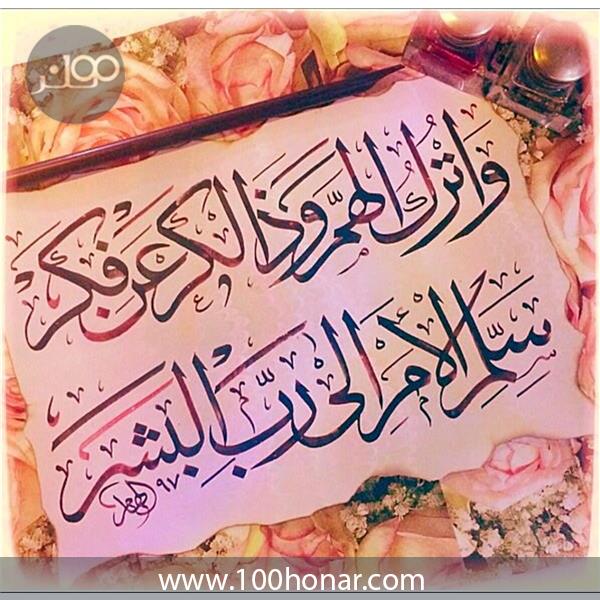 ۱۰۰هنر
وَاتْرُكِ الْهَمَّ وَذَا الْكَرَّ عَنْ فِكَر
سَلِّمِ الْأَمْرَ إِلَى رَبِّ الْبَشَر
۹۷
www.100honar.com